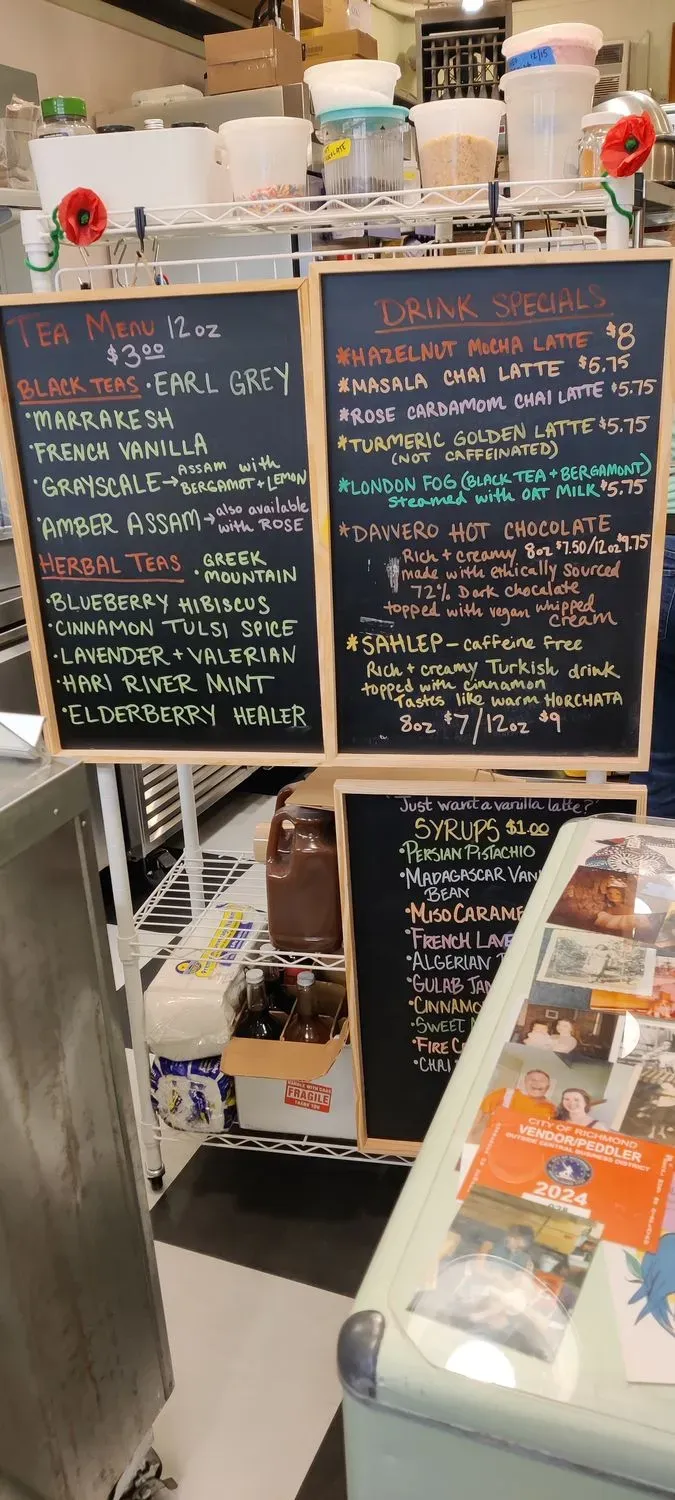 12/15
CHOCOLATE
TEA MENU 12oz
$3.00
BLACK TEAS • EARL GREY
• MARRAKESH
• FRENCH VANILLA
• GRAYSCALE → ASSAM with BERGAMOT + LEMON
• AMBER ASSAM → also available with ROSE
HERBAL TEAS • GREEK MOUNTAIN
• BLUEBERRY HIBISCUS
• CINNAMON TULSI SPICE
• LAVENDER + VALERIAN
• HARI RIVER MINT
• ELDERBERRY HEALER
DRINK SPECIALS
*HAZELNUT MOCHA LATTE $8
*MASALA CHAI LATTE $5.75
*ROSE CARDAMOM CHAI LATTE $5.75
*TURMERIC GOLDEN LATTE $5.75
(NOT CAFFEINATED)
*LONDON FOG (BLACK TEA + BERGAMONT)
steamed with OAT MILK $5.75
*DAVVERO HOT CHOCOLATE
Rich + creamy 8oz $7.50/12oz $9.75
made with ethically sourced
72% Dark chocolate
topped with vegan whipped
cream
*SAHLEP – caffeine free
Rich + creamy Turkish drink
topped with cinnamon
Tastes like warm HORCHATA
8oz $7/12oz $9
"Just want a vanilla latte?"
SYRUPS $1.00
• PERSIAN PISTACHIO
• MADAGASCAR VAN
BEAN
• MISO CARAME
• FRENCH LAVE
• ALGERIAN
• GULAB JA
• CINNAMO
• SWEET
• FIRE C
• CHAI
HANDLE WITH CARE
FRAGILE
THANK YOU
CITY OF RICHMOND
VENDOR/PEDDLER
OUTSIDE CENTRAL BUSINESS DISTRICT
2024